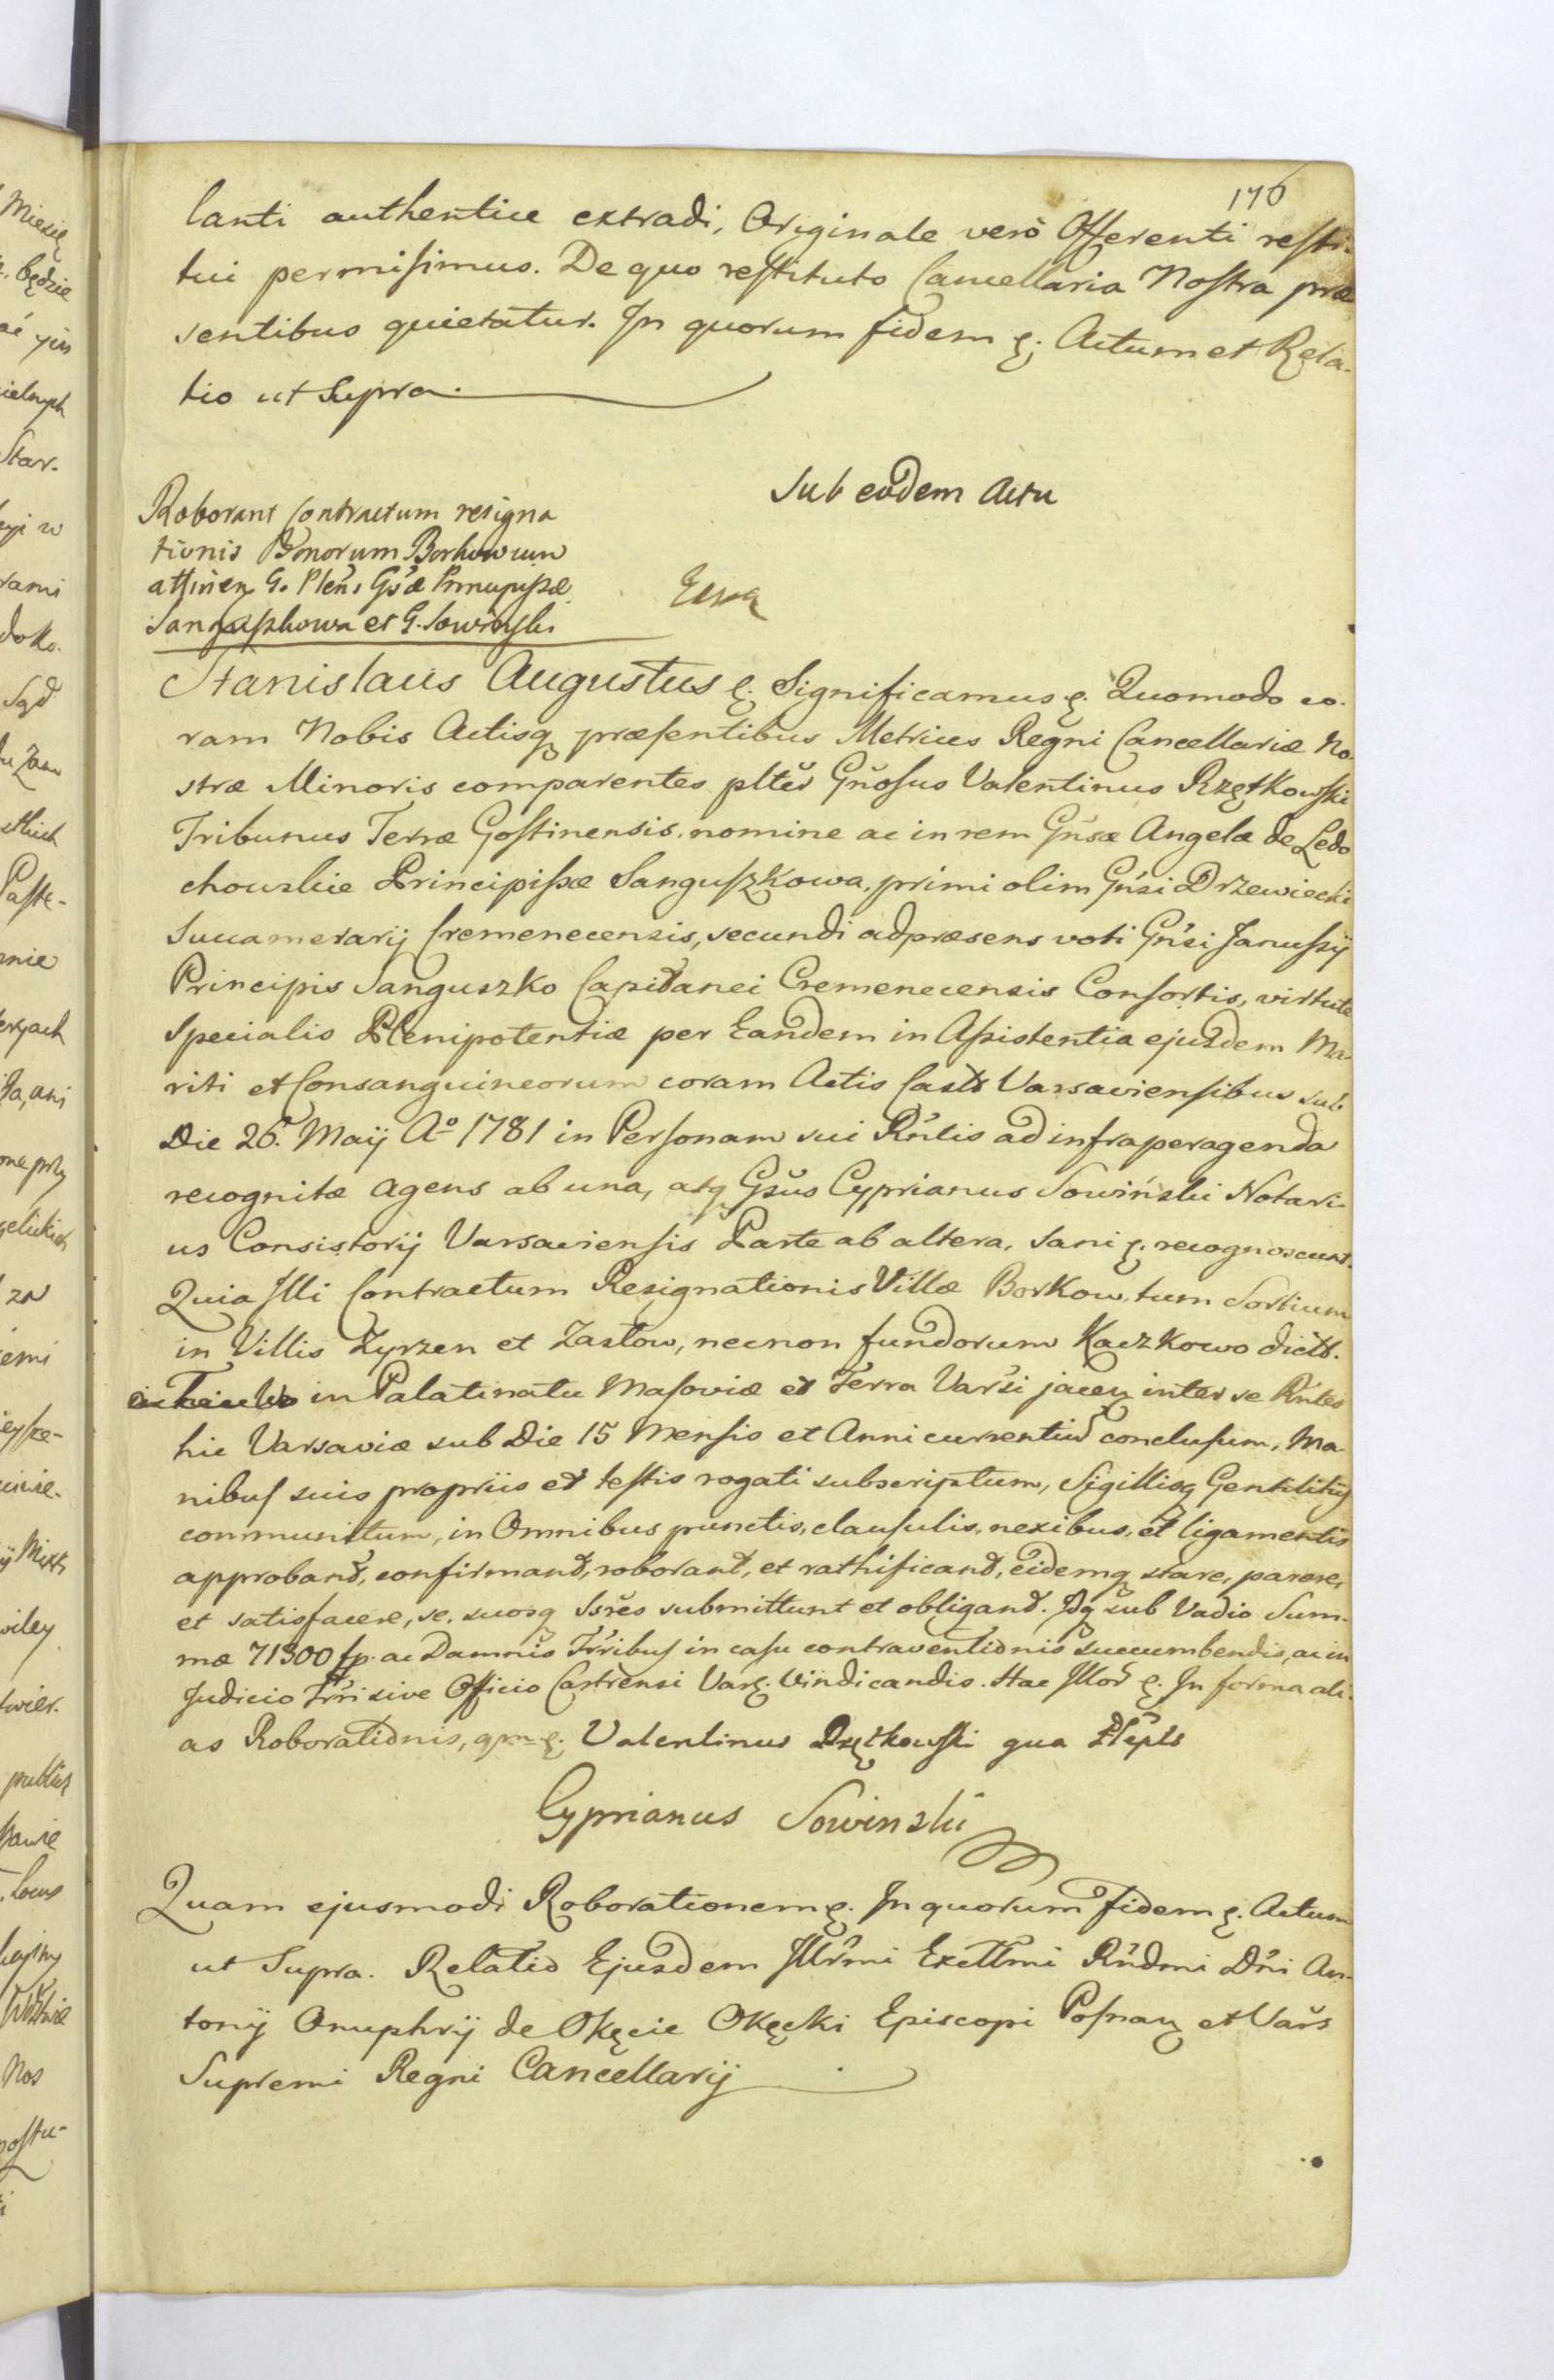 176
lanti authentice extradi, Originale verò Offerenti resti-
tui permisimus. De quo restituto Cancellaria Nostra præ
sentibus quietatur. In quorum fidem &. Actum et Rela-
tio ut Supra.
Sub eodem Actu
Roborant Contractum resigna
tionis Bonorum Borkow cum
attinen G. Plen. Gsæ Principissæ
Sanguszkowa et G. Sowinski
Stanislaus Augustus &. Significamus &. Quomodo co-
ram Nobis Actisq præsentibus Metrices Regni Cancellariæ No-
stræ Minoris comparentes plter Gnosus Valentinus Rzętkowski
Tribunus Terræ Gostinensis, nomine ac in rem Gnsæ Angelæ de Ledo
chowskie Principissæ Sanguszkowa, primi olim Gnsi Drzewiecki
Succamerarij Cremenecensis, secundi adpræsens voti Gnsi Janussij
Principis Sanguszko Capitanei Cremenecensis Consortis, virtute
Specialis Plenipotentiæ per Eandem in Assistentia ejusdem Ma-
riti et Consanguineorum coram Actis Castr Varsaviensibus sub
Die 26. Maij Aº 1781 in Personam sui Rntis ad infraperagenda
recognitæ agens ab una, atq Gsus Cyprianus Sowiński Notari-
us Consistorij Varsaviensis Parte ab altera, Sani &. recognoscunt.
Quia Illi Contractum Resignationis Villæ Borkow, tum Sortium
in Villis Zyrzen et Zastow, necnon fundorum Kaczkowo dictt.
in Palatinatu Masoviæ et Terra Varsi jacen inter se Rntes
hic Varsaviæ sub Die 15 Mensis et Anni currentis conclusum, Ma-
nibus suis propriis et testis rogati subscriptum, Sigillisq Gentilitijs
communitum, in Omnibus punctis, clausulis, nexibus, et ligamentis
approband, confirmand, roborand, et rathificand, eidemq stare, parere,
et satisfacere, se, suosq Ssres submittunt et obligand. Idq sub Vadio Sum-
mæ 71300 fp. ac Damnis Trribus in casu contraventionis succumbendis, ac in
Judicio Trri sive Officio Castrensi Var&. Vindicandis. Hac Illor &. In forma ali-
as Roborationis, qm &. Valentinus Rzętkowski qua Plepts
Cyprianus Sowinski
Quam ejusmodi Roborationem &. In quorum fidem &. Actum
ut Supra. Relatio Ejusdem Illrmi Excellmi Rndmi Dni An-
tonij Onuphrij de Okęcie Okęcki Episcopi Posnan et Vars
Supremi Regni Cancellarij